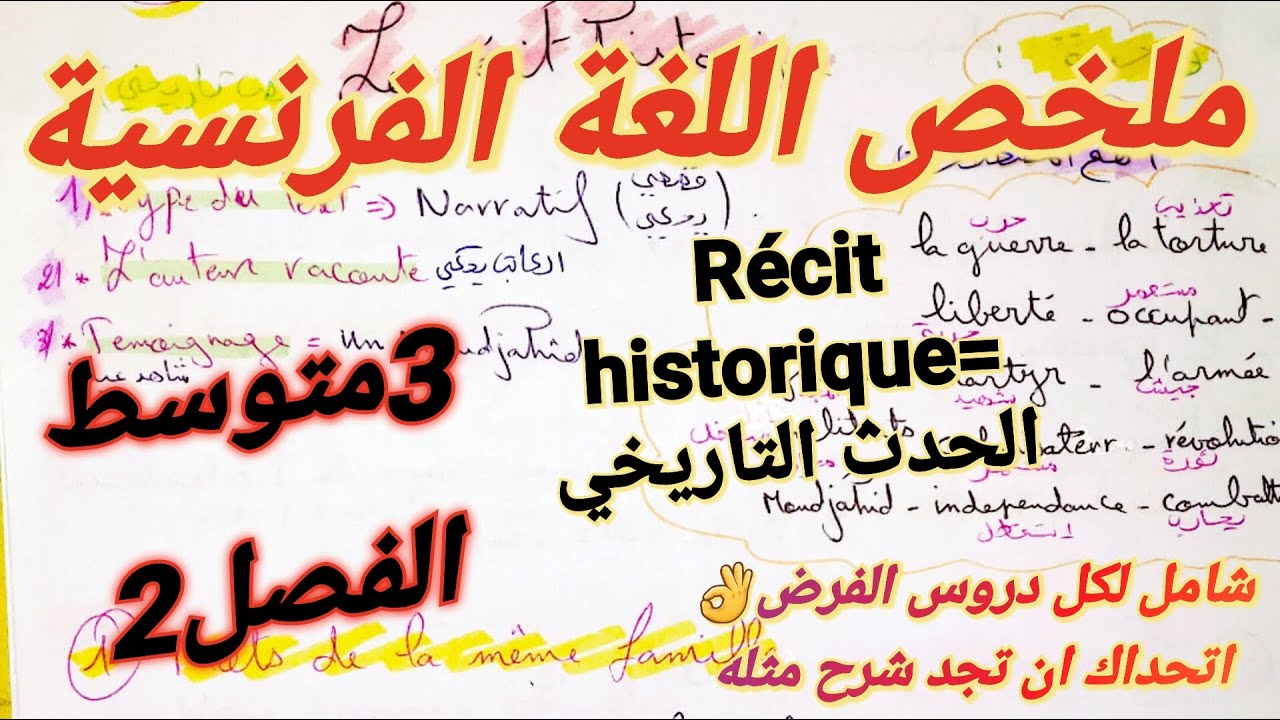 ملخص اللغة الفرنسية
Type du text => Narratif (قصصي
يحكي)
2/* L'auteur raconte الكاتب يحكي
3/* Temoignage = un
شاهد عيان
تعذيب
حرب
la guerre - la torture
مستعمر
liberté - occupant -
l'armée
جيش
شهيد
révolutio
ثورة
Moudjahid - independance - combatt
استقلال
يحارب
Récit
historique=
الحدث التاريخي
3متوسط
الفصل2
شامل لكل دروس الفرض👌
اتحداك ان تجد شرح مثله
de la même famill